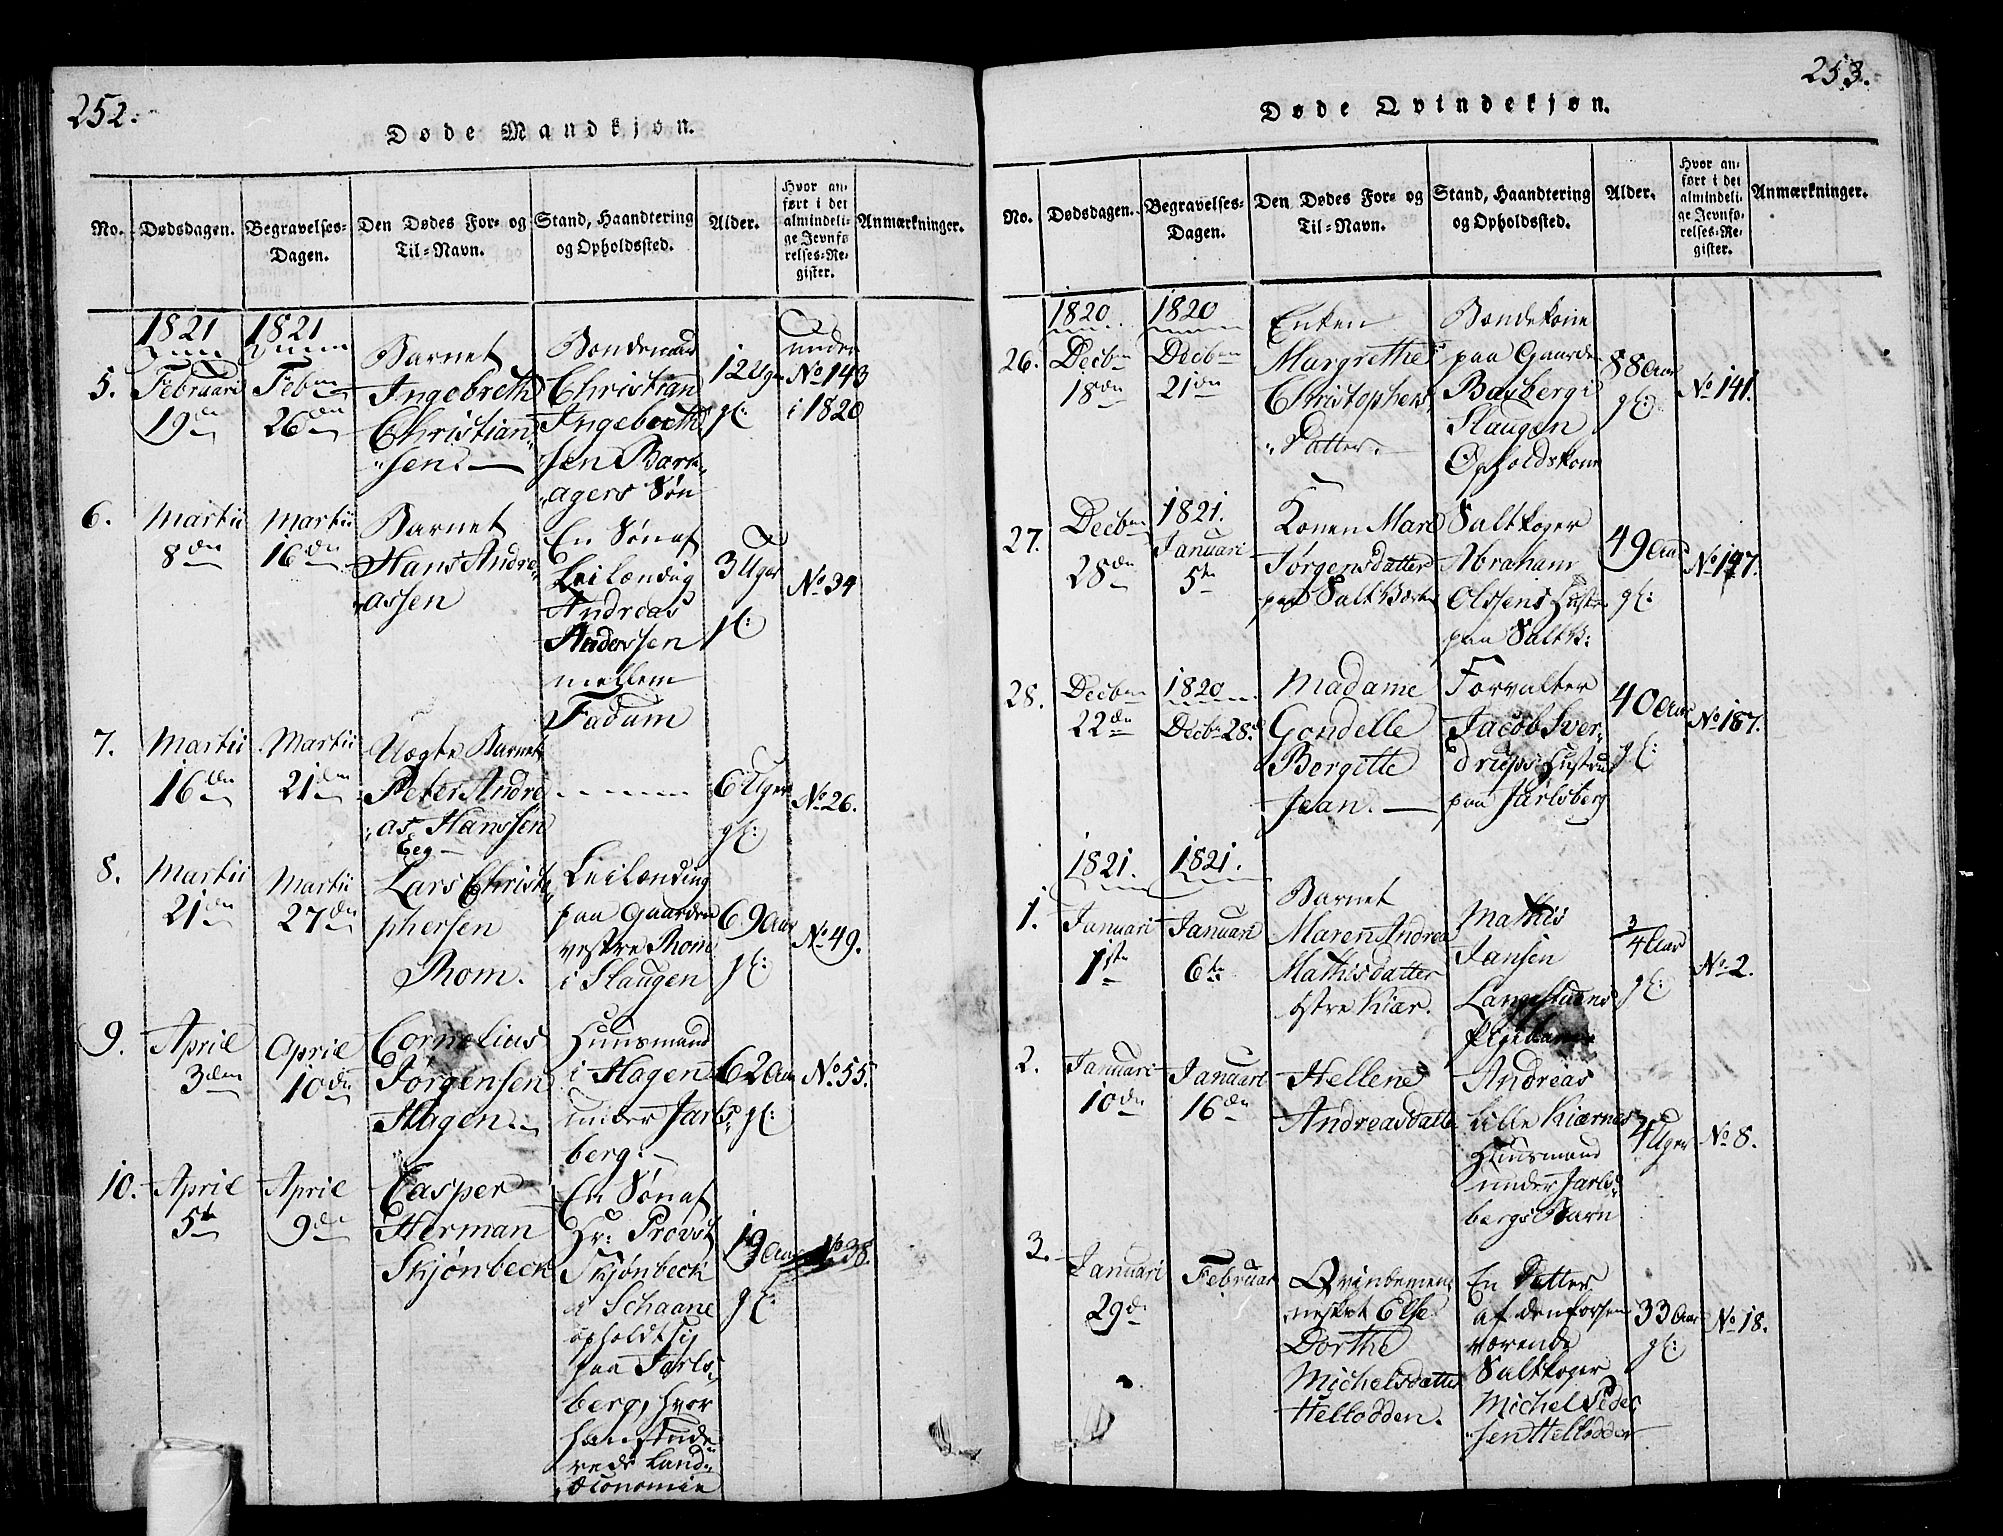 252.
Døde Mandkjøn.
No.
Dødsdagen.
Begravelses-
Dagen.
Den Dødes For- og
Til-Navn.
Stand, Haandtering
og Opholdssted.
Alder.
Hvor an-
ført i det
almindeli-
ge Jevnfø-
relses-Re-
gister.
Anmærkninger.
5.
1821
Februarii
19 den
1821
Febru
26 den
Barnet
Ingebreth
Christian
sen.
Bondemand
Christian
Ingebreth
sen Bark
agers Søn
12 Uger
gl:
under
No 143
i 1820
6.
Martii
8 den
Martii
16 den
Barnet
Hans Andre
assen
En Søn af
Leilændig
Andreas
Anderssen
mellem
Fadum
3 Uger
gl:
No 34
7.
Martii
16 den
Martii
21 den
Uægte Barnet
Peter Andre
as Hanssen
Eeg
6 Uger
gl:
No 26.
8.
Martii
21 den
Martii
27 den
Lars Christo
phersen
Rom.
Leilænding
paa Gaarden
vestre Rom
i Slaugen
69 Aar
gl:
No 49.
9.
April
3 den
April
10 den
Cornelius
Jørgensen
Hagen
Huusmand
i Hagen
under Jarls
berg.
62 Aar
gl:
No 55.
10.
April
5te
April
9 den
Casper
Herman
Skjønbeck
En Søn af
Hr: Provst
Skjønbeck
i Schaane
opholdt sig
paa Jarls
berg, hvor
han stude
rede Land
Œconomie
19 Aar
gl:
No 38.
253.
Døde Qvindekjøn.
No.
Dødsdagen.
Begravelses-
Dagen.
Den Dødes For- og
Til-Navn.
Stand, Haandtering
og Opholdssted.
Alder.
Hvor an-
ført i det
almindeli-
ge Jevnfø-
relses-Re-
gister.
Anmærkninger.
26.
1820
Decbr
18 den
1820
Decbr
21 den
Enken
Margrethe
Christophers
Datter.
Bondekone
paa Gaarden
Basberg i
Slaugen
Opholdskone
88 Aar
gl:
No 141.
27.
Decbr
28 den
1821.
Januari
5te
Konen Mare
Jørgensdatter
paa Salt Værket
Saltkoger
Abraham
Olssens Hustru
paa Saltv:
49 Aar
gl:
No 147.
28.
Decbr
22 den
1820
Decbr 28 d
Madame
Gondelle
Borgitte
Jean.
Forvalter
Jacob Sver
drups Hustru
paa Jarlsberg
40 Aar
gl:
No 187.
1.
1821.
Januari
1ste
1821.
Januari
6te
Barnet
Maren Andrea
Mathisdatter
østre Kiær.
Mathis
Jansen
Langestuens
Pleiebarn
3/4 Aar
gl:
No 2.
2.
Januari
10 den
Januari
16 den
Hellene
Andreasdatter
Andreas
Lille Kiærnes
Huusmand
under Jarls
bergs Barn
4 Uger
No 8.
3.
Januari
29 de
Februar
Qvindemen
nesket Else
Dorthe
Michelsdatter
Hellodden.
En Datter
af den forhen
værende
Saltkoger
Michel Peder
sen Hellodden
33 Aar
gl:
No 18.